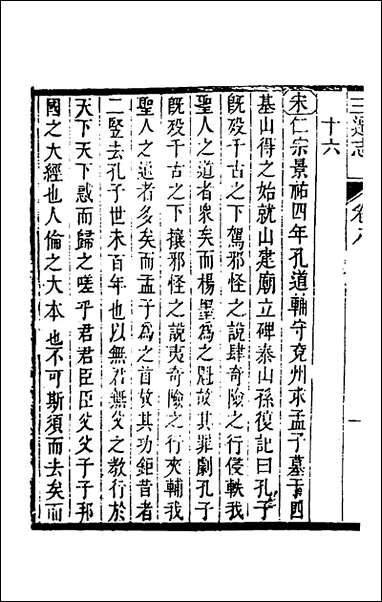 三遷志
卷八
一
十六
宋仁宗景祐四年孔道輔守兖州求孟子墓于四
基山得之始就山建廟立碑泰山孫復記曰孔子
旣殁千古之下駕邪怪之說肆奇險之行侵軼我
聖人之道者衆矣而楊墨爲之魁故其罪劇孔子
旣殁千古之下攘邪怪之說夷奇險之行夾輔我
聖人之道者多矣而孟子爲之首故其功鉅昔者
二竪去孔子世未百年也以無君無父之教行於
天下天下惑而歸之嗟乎君君臣臣父父子子邦
國之大經也人倫之大本也不可斯須而去矣而